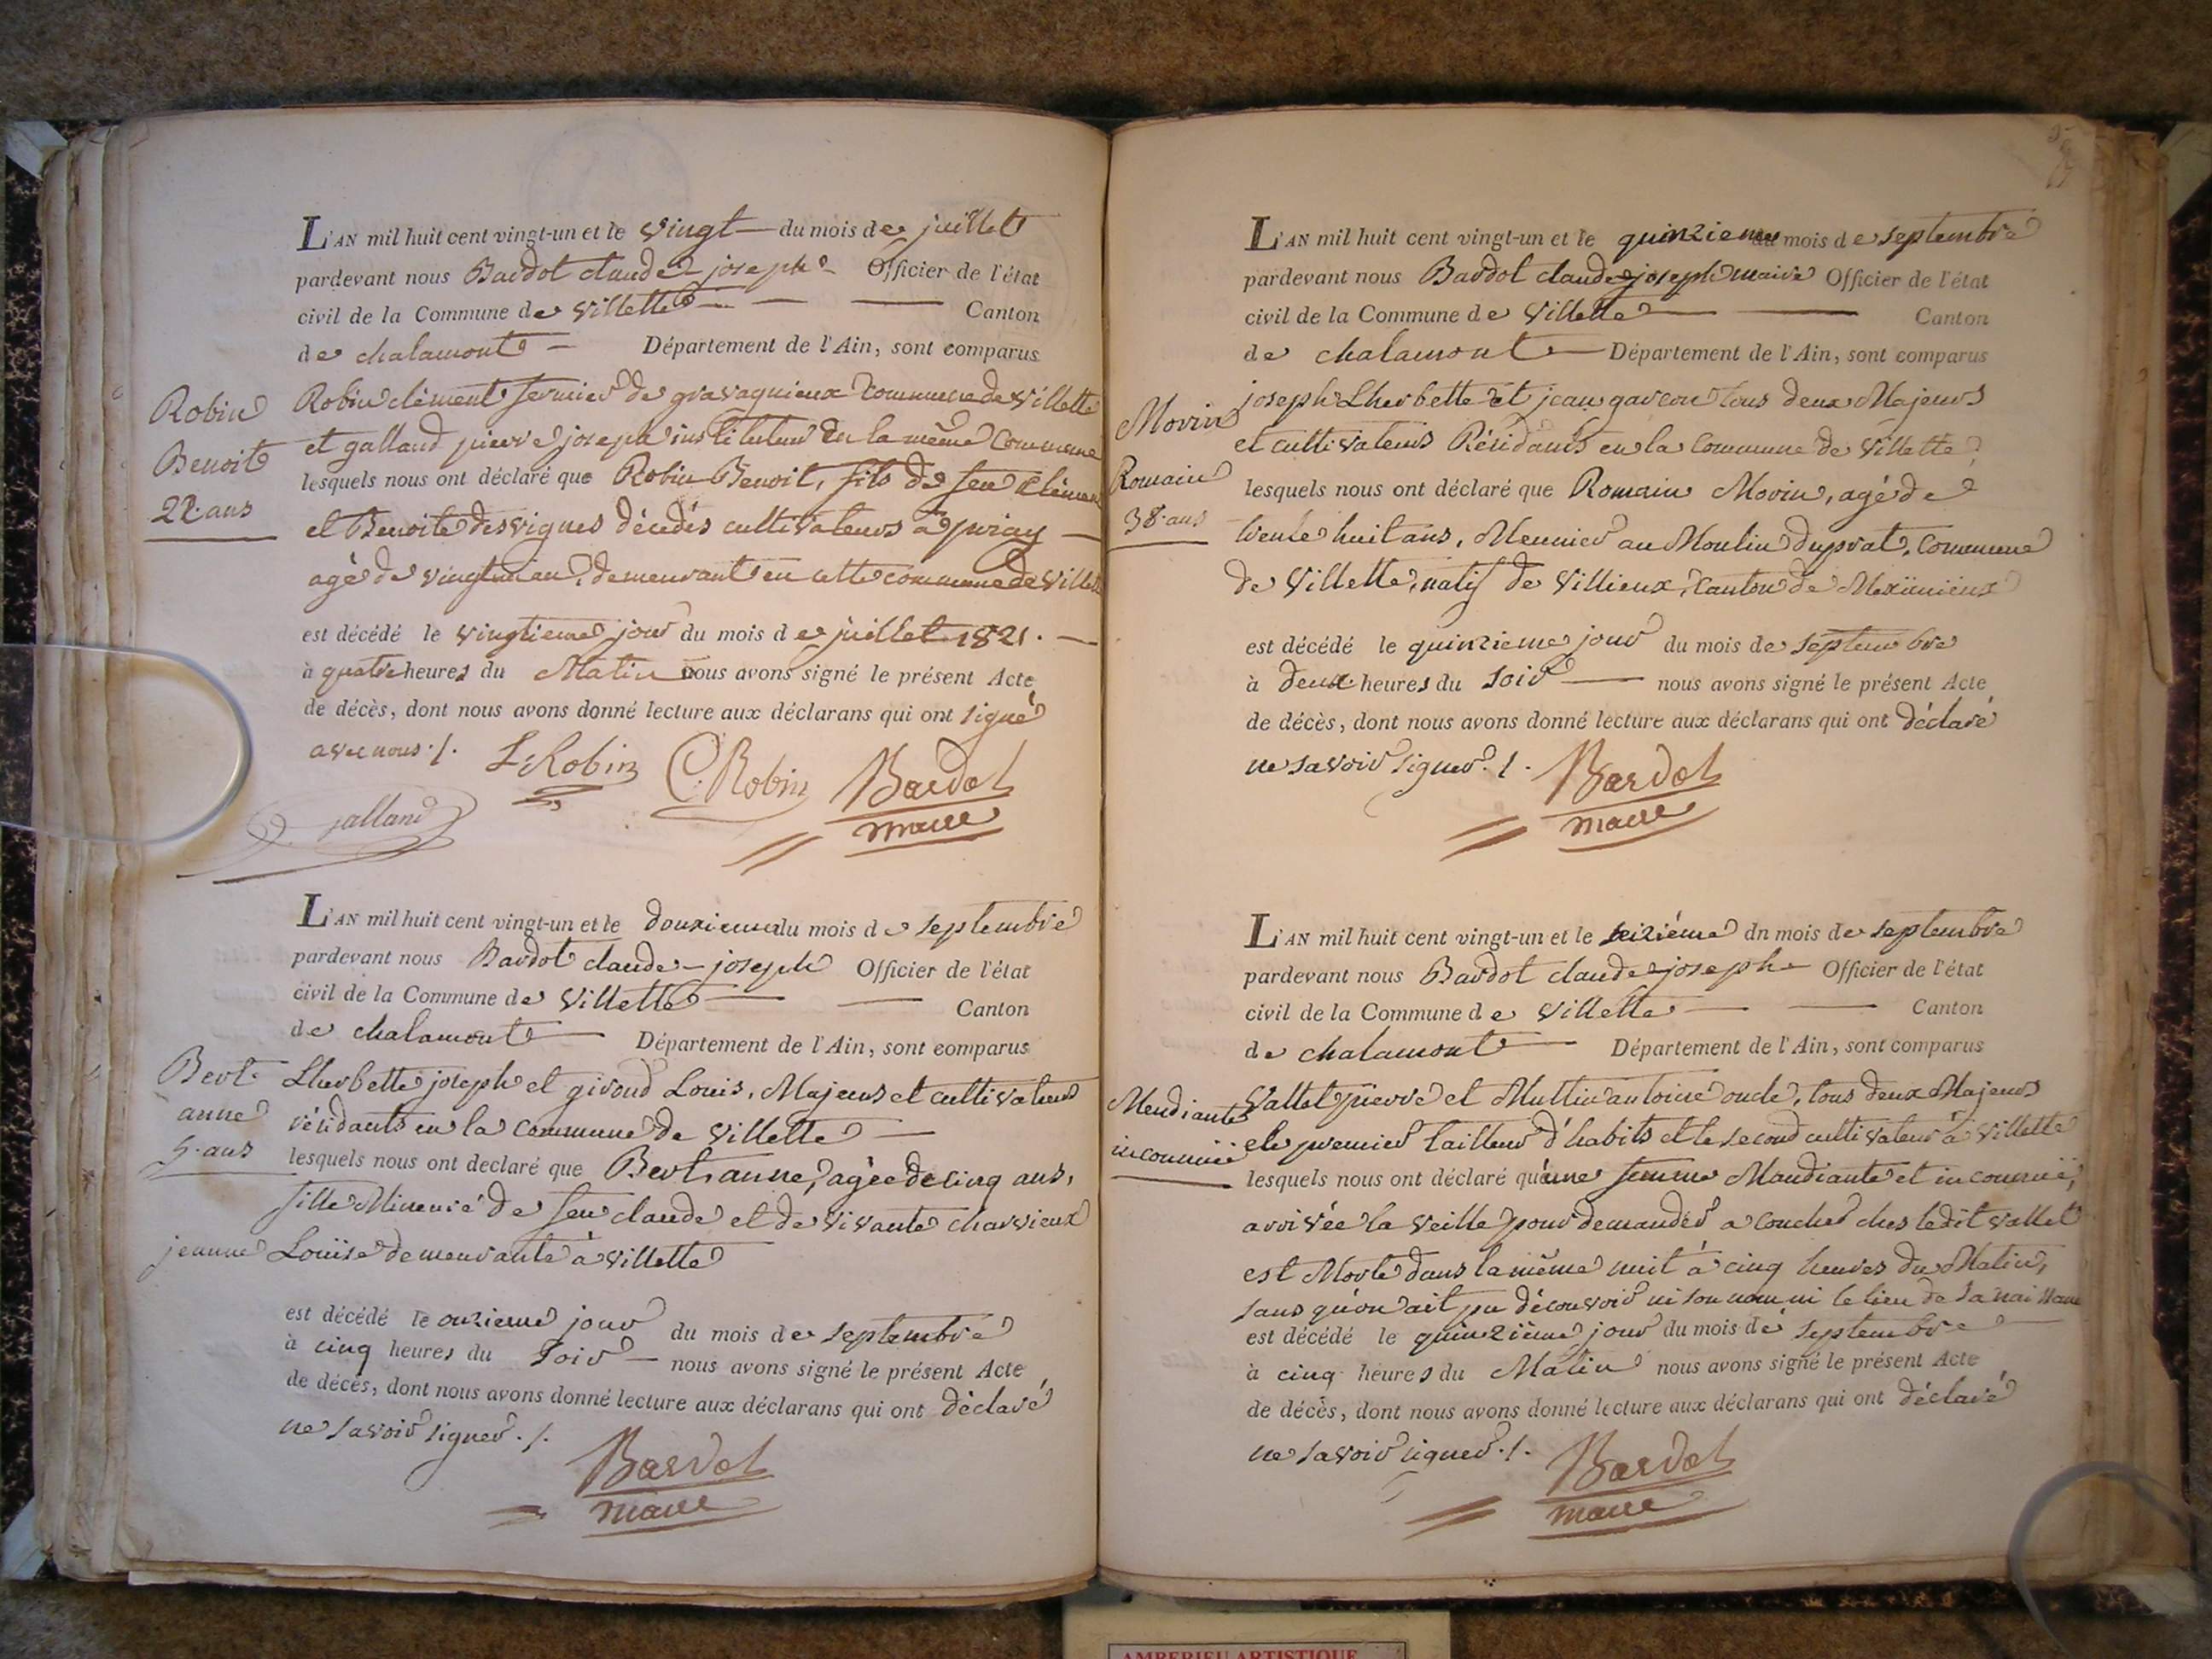 L'AN mil huit cent vingt-un et le vingt du mois de juillet
pardevant nous Bardot claude joseph Officier de l'état
civil de la Commune de Villette Canton
de chalamont Département de l'Ain, sont comparus
Robin clément fermier de gravagnieux commune de Villette
et galland pierre joseph instituteur en la même Commune
lesquels nous ont déclaré que Robin Benoit, fils de feu Clément
et Benoite desvignes décédés cultivateurs à priay
agé de vingt un an, demeurant en cette commune de Villette
est décédé le vingtieme jour du mois de juillet 1821.
à quatre heures du Matin nous avons signé le présent Acte
de décès, dont nous avons donné lecture aux déclarans qui ont signé
avec nous ./.
L. Robin C. Robin Bardot
maire
galland
Robin
Benoit
22 ans
L'AN mil huit cent vingt-un et le douzieme du mois de septembre
pardevant nous Bardot claude-joseph Officier de l'état
civil de la Commune de Villette Canton
de chalamont Département de l'Ain, sont comparus
Lherbette joseph et giroud Louis, Majeurs et cultivateurs
résidants en la commune de Villette
lesquels nous ont declaré que Bert anne, agée de cinq ans,
fille Mineure de feu claude et de vivante charvieux
jeanne Louise demeurante à villette
est décédé le onzieme jour du mois de septembre
à cinq heures du soir nous avons signé le présent Acte
de décès, dont nous avons donné lecture aux déclarans qui ont déclaré
ne savoir signer ./.
Bardot
maire
Bert
anne
5 ans
L'AN mil huit cent vingt-un et le quinzieme du mois de septembre
pardevant nous Bardot claude joseph maire Officier de l'état
civil de la Commune de Villette Canton
de chalamont Département de l'Ain, sont comparus
joseph Lherbette et jean garcon tous deux Majeurs
et cultivateurs Résidants en la Commune de Villette
lesquels nous ont déclaré que Romain Morin, agé de
trente huit ans, Meunier au Moulin duprat, Commune
de Villette, natif de Villieux, Canton de Meximieux
est décédé le quinzieme jour du mois de septembre
à deux heures du soir nous avons signé le présent Acte
de décès, dont nous avons donné lecture aux déclarans qui ont déclaré
ne savoir signer ./.
Bardot
maire
Morin
Romain
38 ans
L'AN mil huit cent vingt-un et le seizième dn mois de septembre
pardevant nous Bardot claude joseph Officier de l'état
civil de la Commune de Villette Canton
de chalamont Département de l'Ain, sont comparus
Vallet pierre et Muttin antoine oncle, tous deux Majeurs
et le premier tailleur d'habits et le second cultivateur à Villette
lesquels nous ont déclaré qu'une femme Mandiante et inconnuë,
arrivée la veille pour demander a coucher ches ledit vallet
est Morte dans la même nuit à cinq heures du Matin,
sans qu'on ait pu découvrir ni son nom ni le lieu de sa naissance
est décédé le quinzième jour du mois de septembre
à cinq heures du Matin nous avons signé le présent Acte
de décès, dont nous avons donné lecture aux déclarans qui ont déclaré
ne savoir signer ./.
Bardot
maire
Mendiante
inconnuë
AMBERIEU ARTISTIQUE